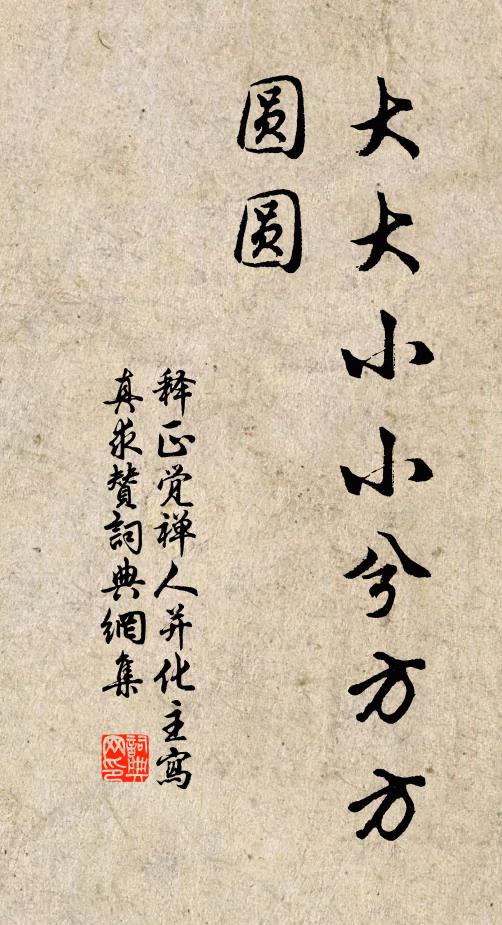 大大小小兮方方
圆圆
释正觉禅人并化主寫
真求赞詞典網集
詞典
网印